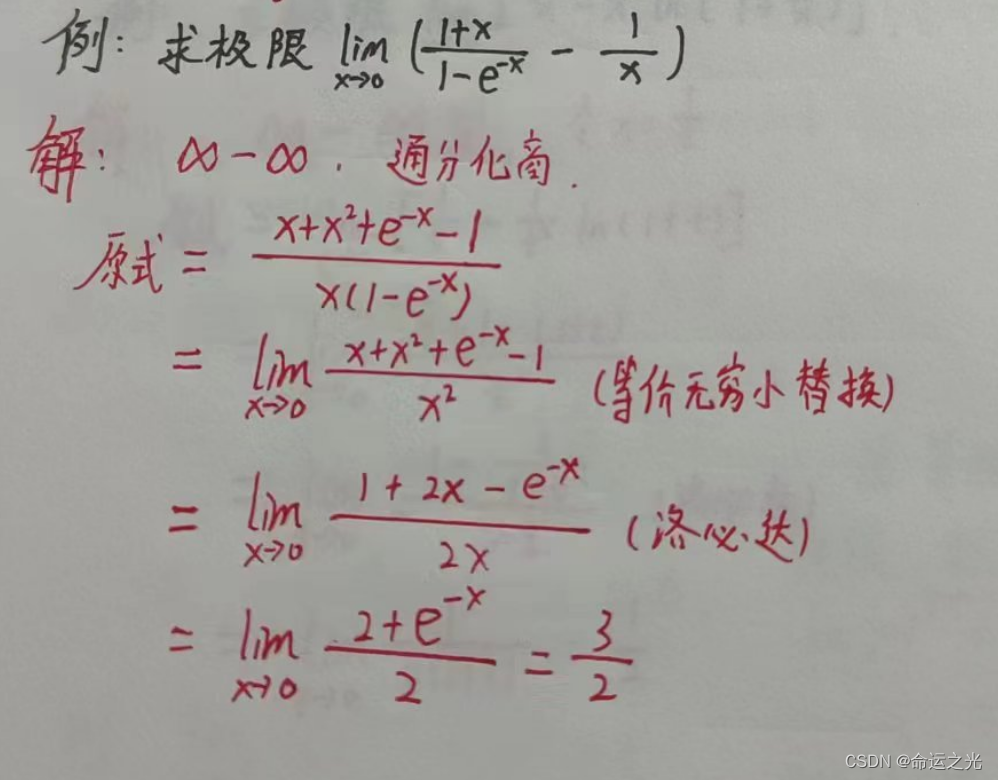 例: 求极限 lim x→0 (1+x / 1-e^-x - 1/x)
解: ∞-∞. 通分化商.
原式 = x+x²+e^-x-1 / x(1-e^-x)
= lim x→0 x+x²+e^-x-1 / x² (等价无穷小替换)
= lim x→0 1+2x-e^-x / 2x (洛必达)
= lim x→0 2+e^-x / 2 = 3/2
CSDN @命运之光